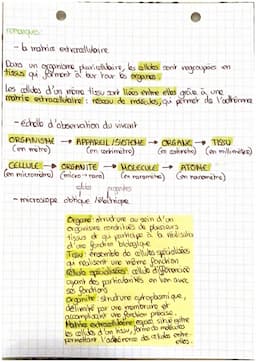 remarques:
- la matrice extracellulaire
Dans un organisme pluricellulaire, les cellules sont regroupées en
tissus qui forment à leur tour les organes.
Les cellules d'un même tissu sont liées entre elles grâce à une
matrice extracellulaire : réseau de molécules, qui permet de l'adhérence
- échelle d'observation du vivant
ORGANISME → APPAREIL/SYSTÈME → ORGANE → TISSU
(en mètre) (en centimètre) (en centimètre) (en millimètre)
CELLULE → ORGANITE → MOLECULE → ATOME
(en micromètre) (micro → nano) (en nanomètre) (en nanomètre)
- microscope optique / électronique
Organe : structure au sein d'un
organisme constituée de plusieurs
tissus et qui participe à la réalisation
d'une fonction biologique
Tissu : ensemble de cellules spécialisées
qui réalisent une même fonction
Cellule spécialisée : cellule différenciée
ayant des particularités en lien avec
ses fonctions
Organite : structure cytoplasmique,
délimitée par une membrane et
accomplissant une fonction précise.
Matrice extracellulaire : espace situé entre
les cellules d'un tissu, formé de molécules
permettant l'adhérence des cellules entre
elles.